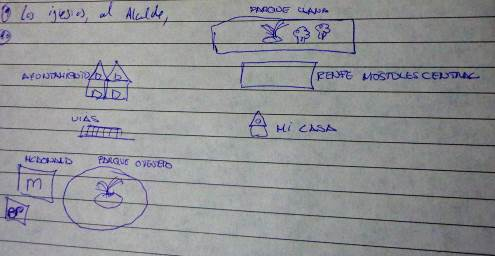 ① Los iglesios, al Alcalde,
PARQUE LIANA
AYUNTAMIENTO
RENFE MOSTOLES CENTRAL
VIAS
MI CASA
MCDONALD PARQUE OVEJERO
M